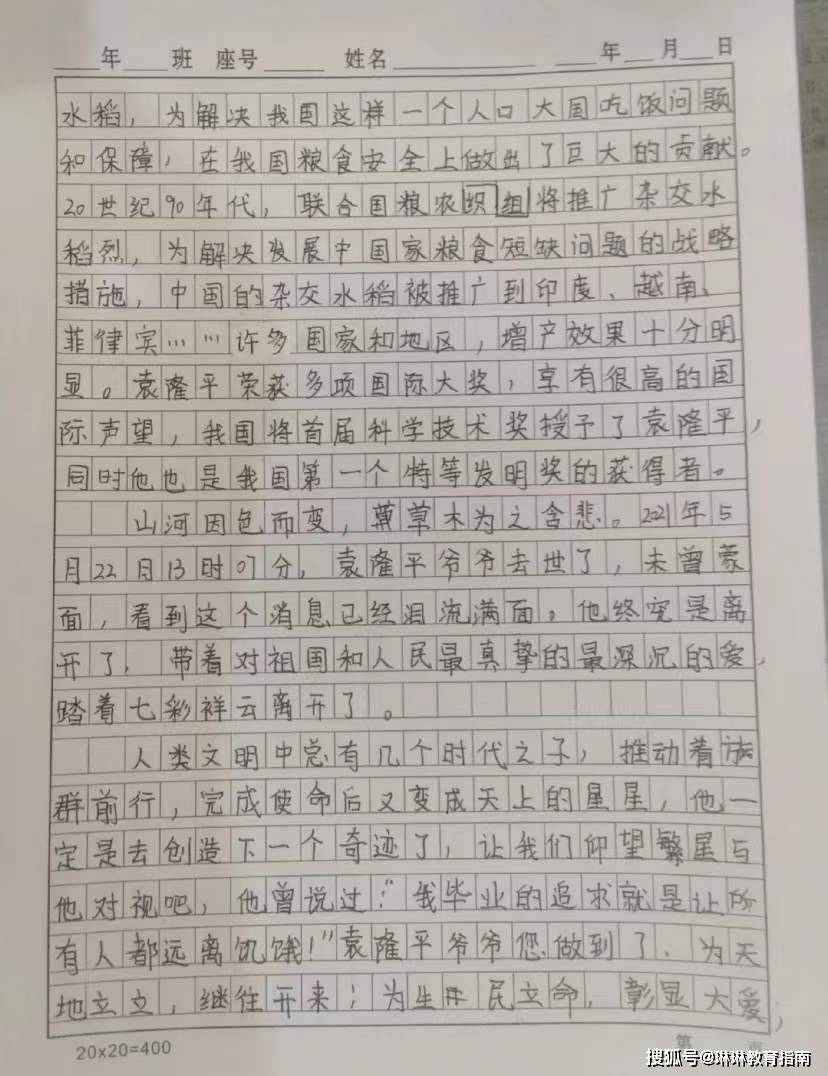 年 班 座号 姓名 年 月 日
水稻，为解决我国这样一个人口大国吃饭问题
和保障，在我国粮食安全上做出了巨大的贡献。
20世纪90年代，联合国粮农织组将推广杂交水
稻烈，为解决发展中国家粮食短缺问题的战略
措施，中国的杂交水稻被推广到印度、越南、
菲律宾……许多国家和地区，增产效果十分明
显。袁隆平荣获多项国际大奖，享有很高的国
际声望，我国将首届科学技术奖授予了袁隆平，
同时他也是我国第一个特等发明奖的获得者。
山河因色而变，草木为之含悲。2021年5
月22日13时07分，袁隆平爷爷去世了，未曾蒙
面，看到这个消息已经泪流满面。他终究是离
开了，带着对祖国和人民最真挚的最深沉的爱，
踏着七彩祥云离开了。
人类文明中总有几个时代之子，推动着族
群前行，完成使命后又变成天上的星星，他一
定是去创造下一个奇迹了，让我们仰望繁星与
他对视吧，他曾说过："我毕业的追求就是让所
有人都远离饥饿！"袁隆平爷爷您做到了、为天
地立立，继往开来；为生民立命，彰显大爱；
20x20=400
第 页
搜狐号@琳琳教育指南